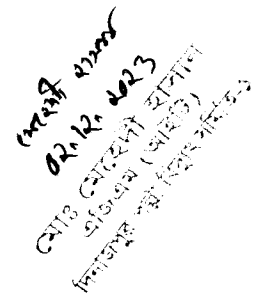 মেহেদী হাসান
০২.১২.২০২৩
মোঃ মেহেদী হাসান
এজিএম (আইটি)
দিনাজপুর পল্লী বিদ্যুৎ সমিতি-১